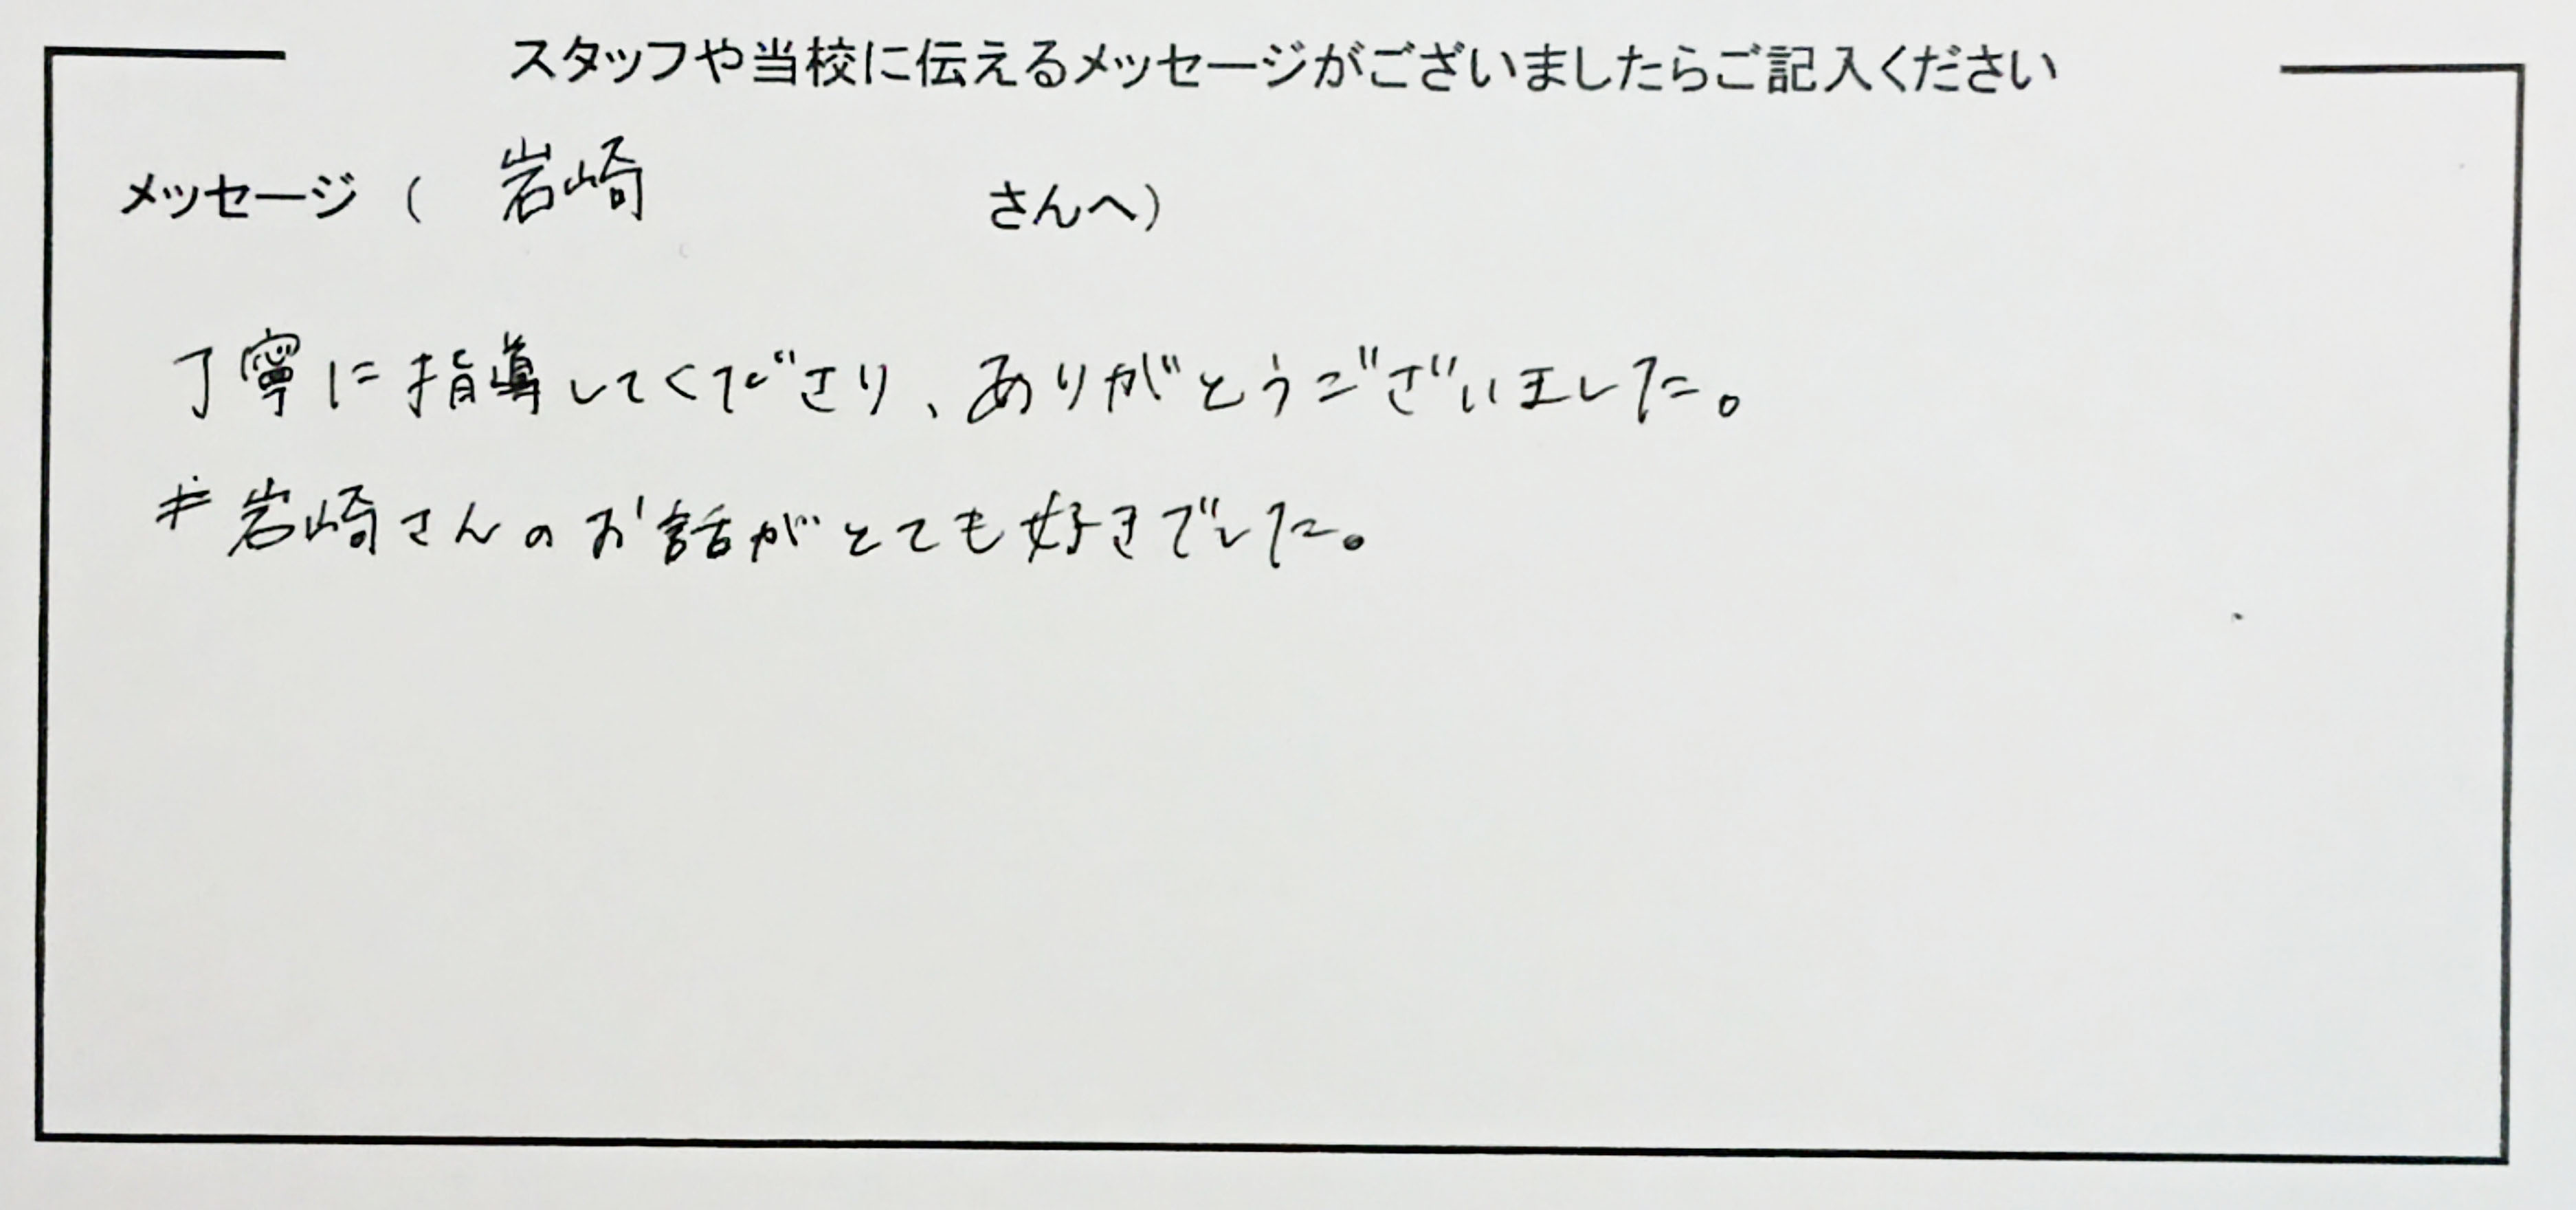 スタッフや当校に伝えるメッセージがございましたらご記入ください
メッセージ（ 岩崎 さんへ）
丁寧に指導してくださり、ありがとうございました。
岩崎さんのお話がとても好きでした。